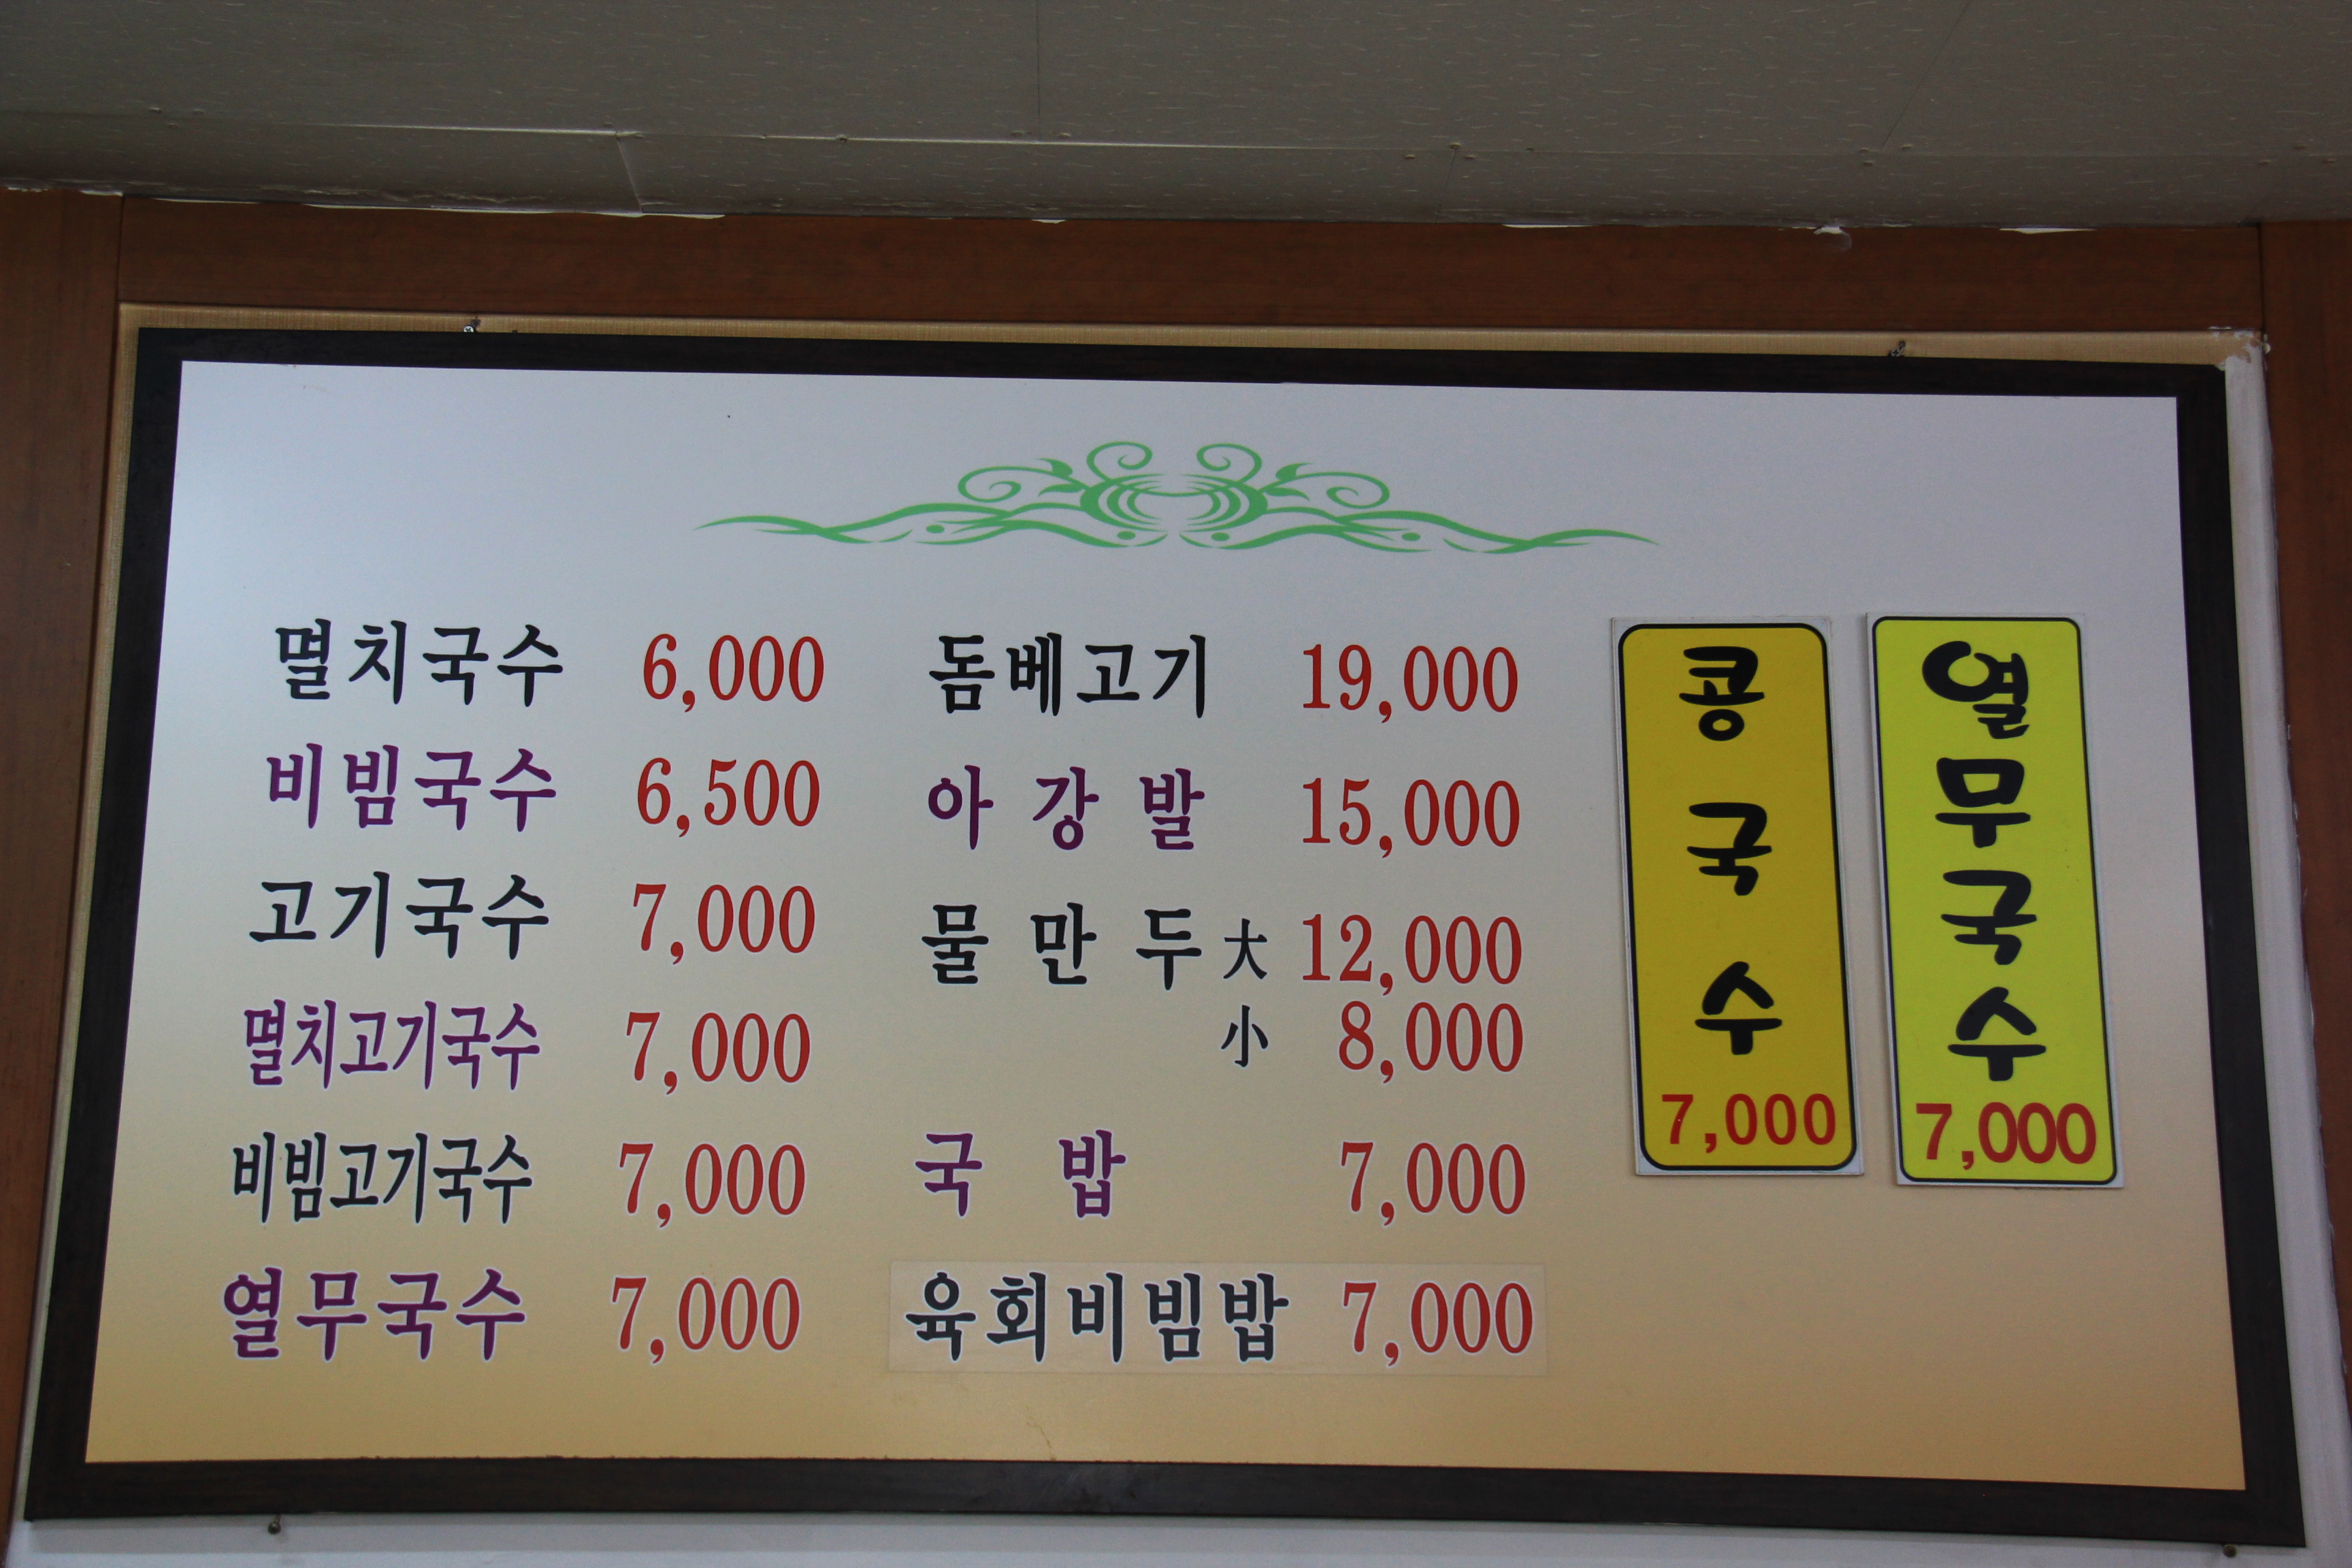 멸치국수 6,000
비빔국수 6,500
고기국수 7,000
멸치고기국수 7,000
비빔고기국수 7,000
열무국수 7,000
돔베고기 19,000
아강발 15,000
물만두 大 12,000
小 8,000
국밥 7,000
육회비빔밥 7,000
콩국수
7,000
열무국수
7,000